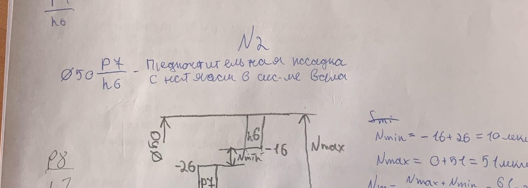 h6
N2
Ø50 P7/h6 - Предпочтительная посадка
с натягом в сис-ме вала
h6
Nmin
-16
Nmax
-26
P7
Nmin = -16+26 = 10 мкм
Nmax = 0+51 = 51 мкм
P8
Nmax + Nmin